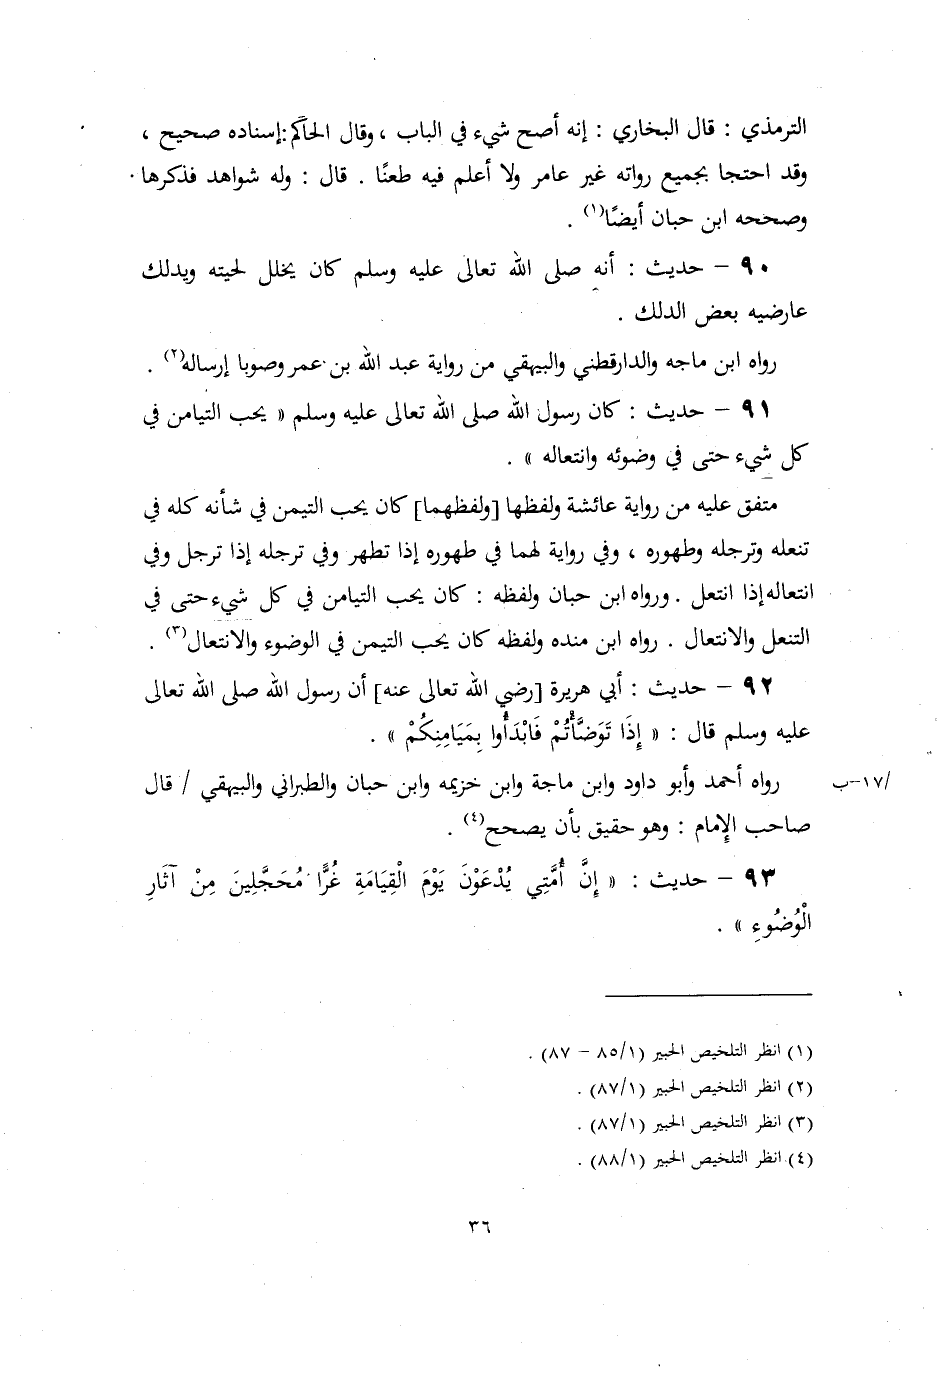 الترمذي : قال البخاري : إنه أصح شيء في الباب ، وقال الحاكم : إسناده صحيح ،
وقد احتجا بجميع رواته غير عامر ولا أعلم فيه طعنًا . قال : وله شواهد فذكرها .
وصححه ابن حبان أيضًا(١) .
٩٠ – حديث : أنه صلى الله تعالى عليه وسلم كان يخلل لحيته ويدلك
عارضيه بعض الدلك .
رواه ابن ماجه والدارقطني والبيهقي من رواية عبد الله بن عمر وصوبا إرساله(٢) .
٩١ – حديث : كان رسول الله صلى الله تعالى عليه وسلم « يحب التيامن في
كل شيء حتى في وضوئه وانتعاله » .
متفق عليه من رواية عائشة ولفظها [ولفظهما] كان يحب التيمن في شأنه كله في
تنعله وترجله وطهوره ، وفي رواية لهما في طهوره إذا تطهر وفي ترجله إذا ترجل وفي
انتعاله إذا انتعل . ورواه ابن حبان ولفظه : كان يحب التيامن في كل شيء حتى في
التنعل والانتعال . رواه ابن منده ولفظه كان يحب التيمن في الوضوء والانتعال(٣) .
٩٢ – حديث : أبي هريرة [رضي الله تعالى عنه] أن رسول الله صلى الله تعالى
عليه وسلم قال : « إِذَا تَوَضَّأْتُمْ فَابْدَأُوا بِمَيَامِنِكُمْ » .
رواه أحمد وأبو داود وابن ماجة وابن خزيمه وابن حبان والطبراني والبيهقي / قال
/١٧–ب
صاحب الإمام : وهو حقيق بأن يصحح(٤) .
٩٣ – حديث : « إِنَّ أُمَّتِي يُدْعَوْنَ يَوْمَ الْقِيَامَةِ غُرًّا مُحَجَّلِينَ مِنْ آثَارِ
الْوُضُوءِ » .
(١) انظر التلخيص الحبير (٨٥/١ – ٨٧) .
(٢) انظر التلخيص الحبير (٨٧/١) .
(٣) انظر التلخيص الحبير (٨٧/١) .
(٤) انظر التلخيص الحبير (٨٨/١) .
٣٦